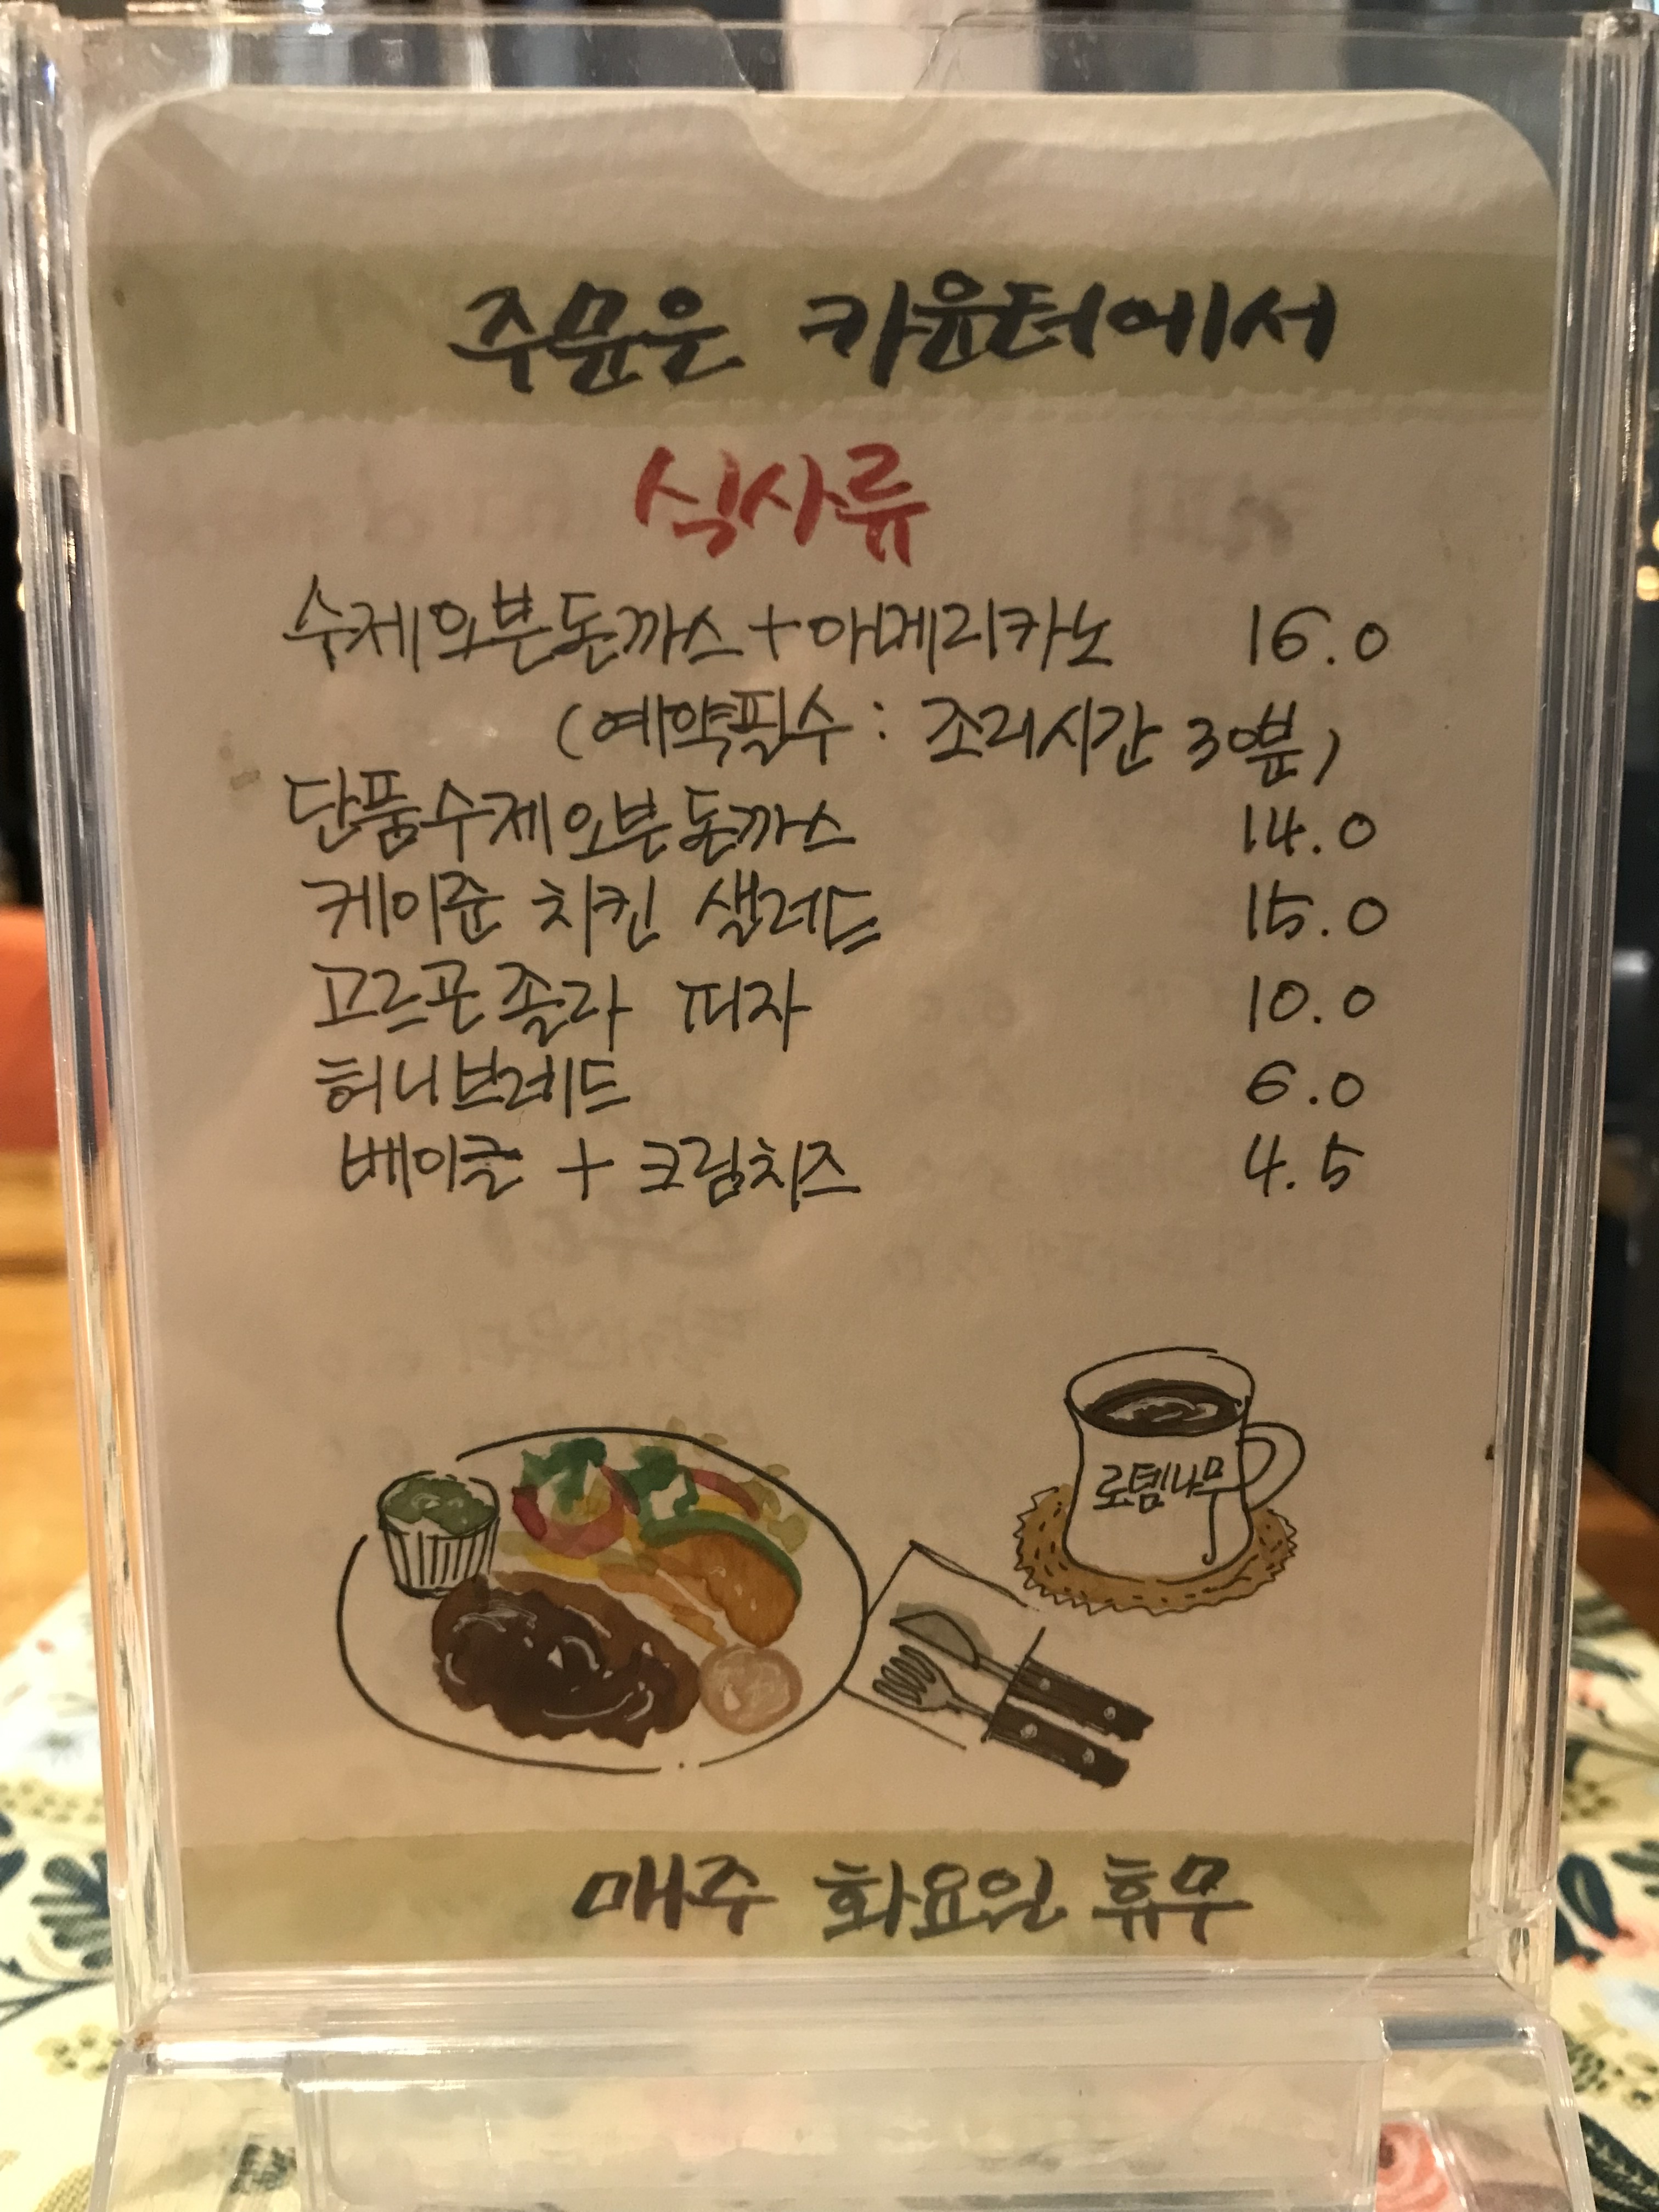 주문은 카운터에서
식사류
수제오븐돈까스+아메리카노 16.0
(예약필수 : 조리시간 30분)
단품수제오븐돈까스 14.0
케이준 치킨 샐러드 15.0
고르곤졸라 피자 10.0
허니브레드 6.0
베이글 + 크림치즈 4.5
로뎀나무
매주 화요일 휴무